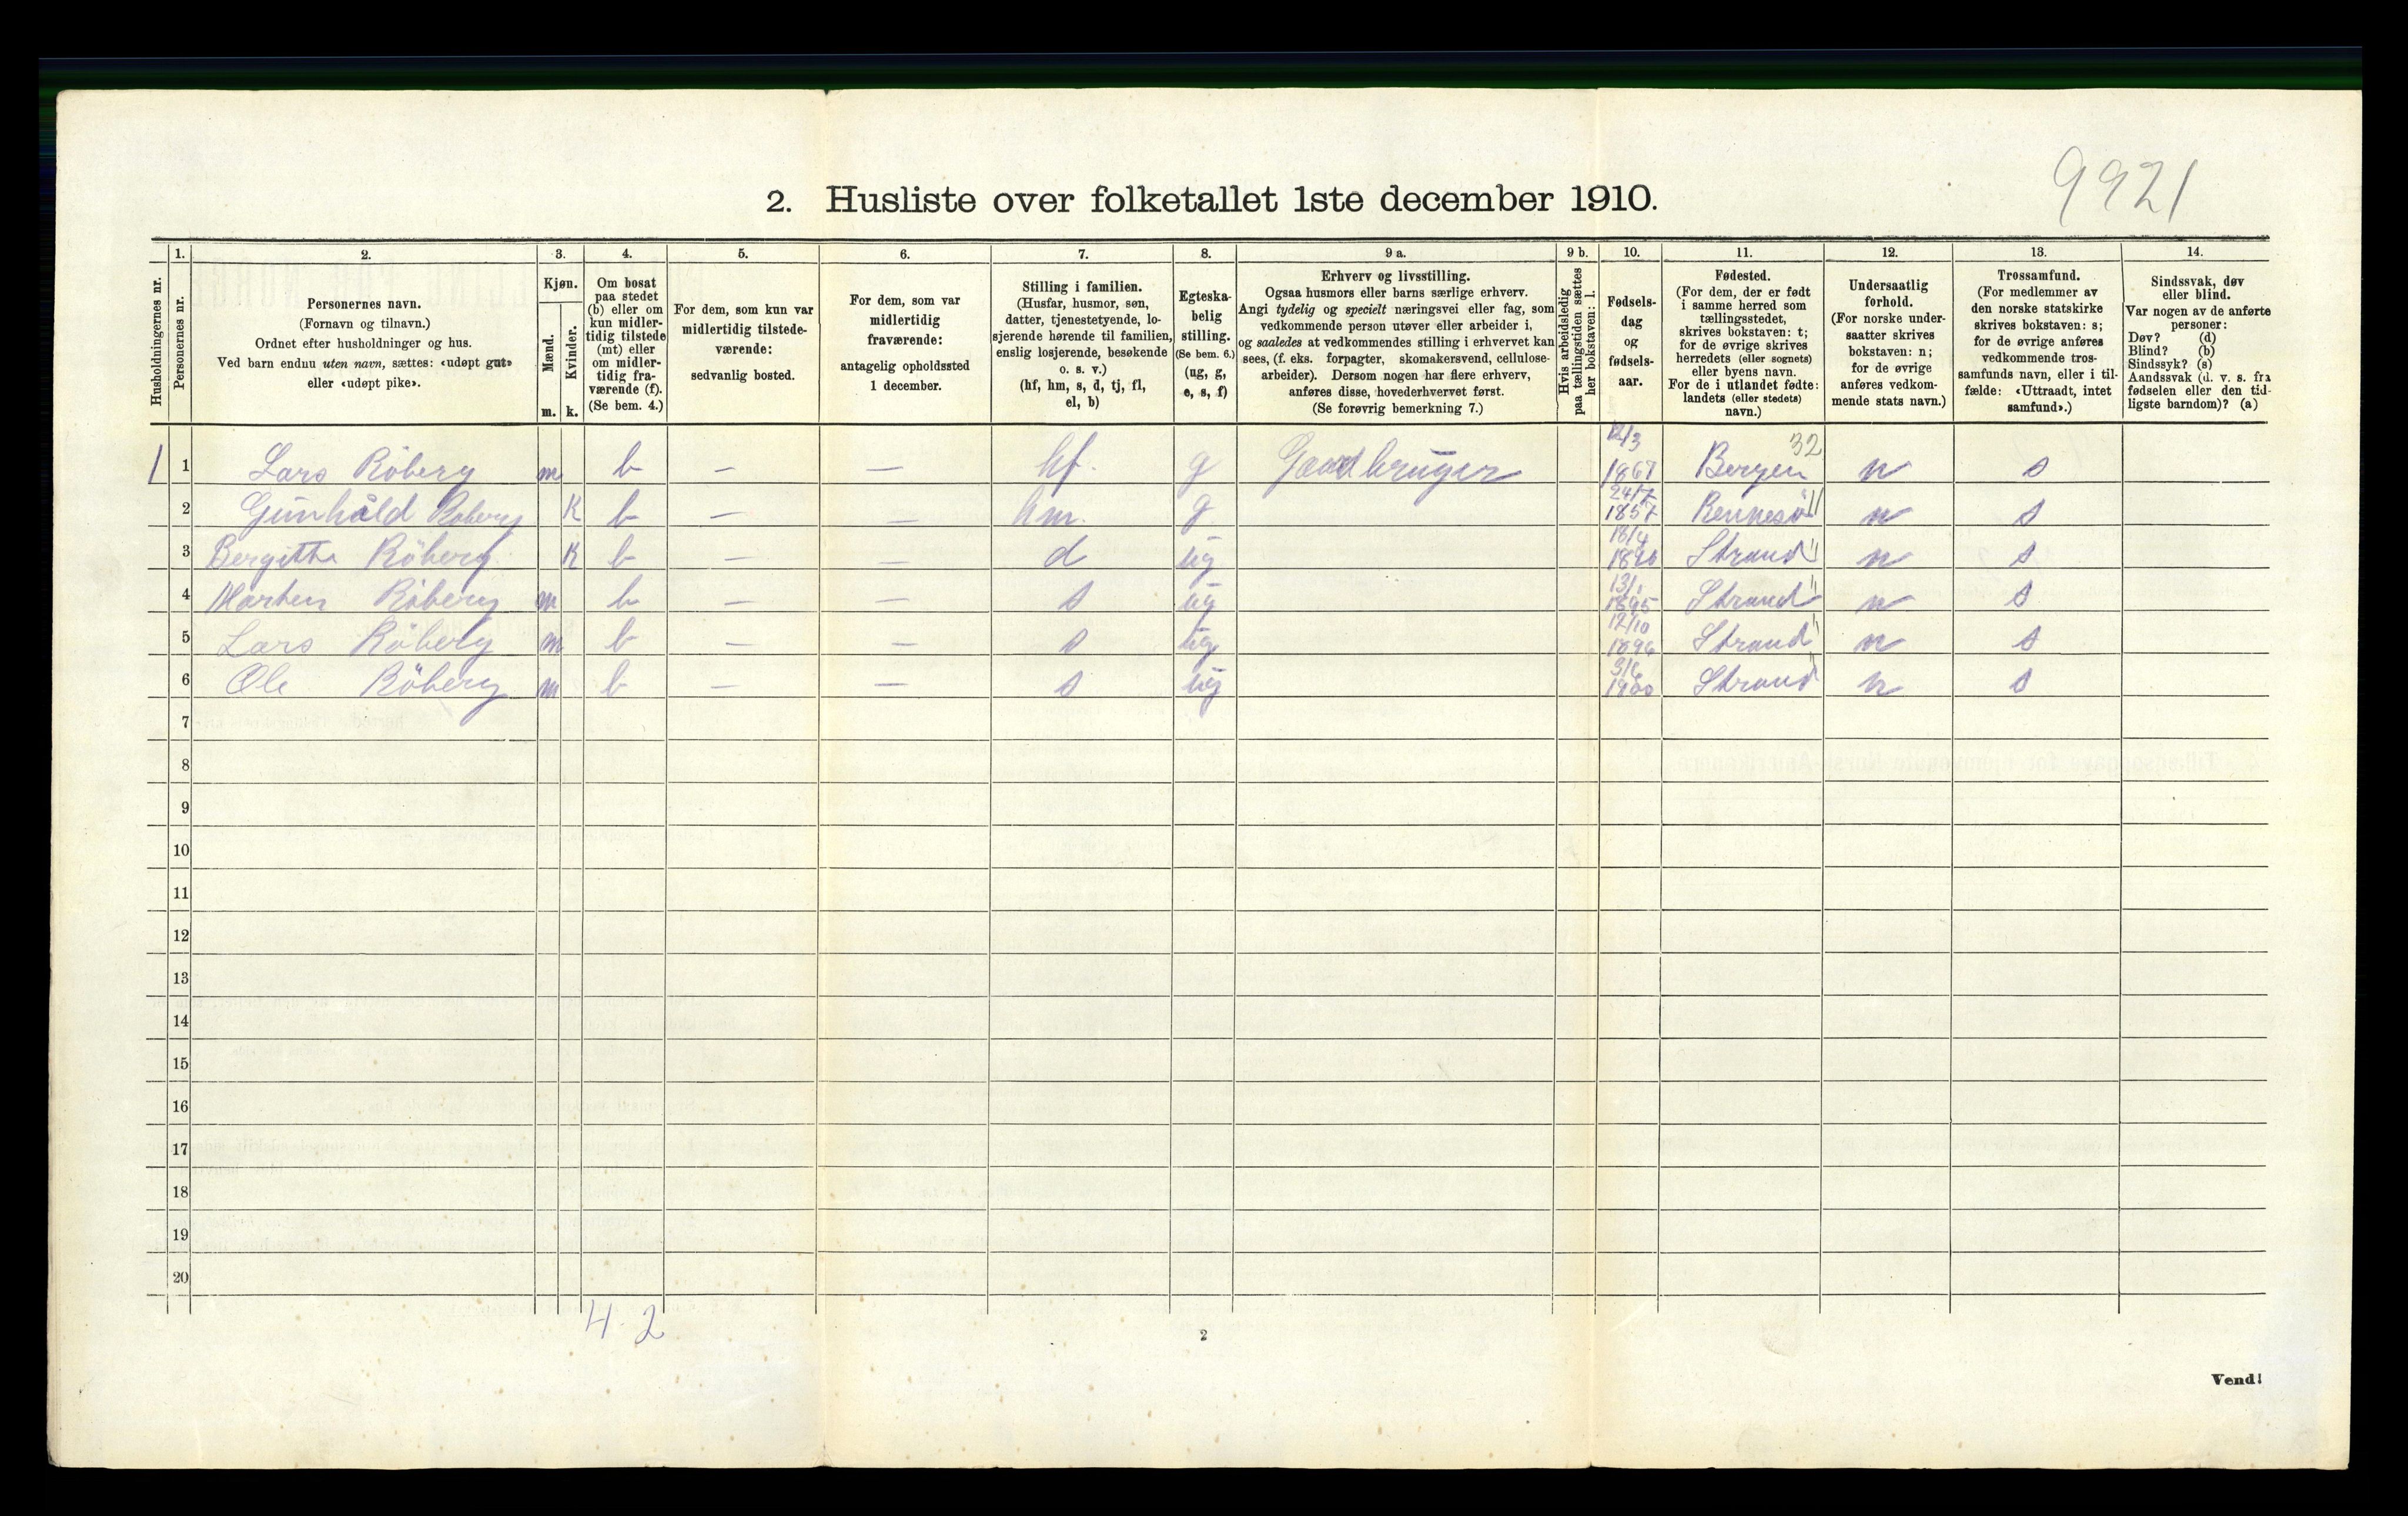 9921
2. Husliste over folketallet 1ste december 1910.
1. 2. 3. 4. 5. 6. 7. 8. 9 a. 9 b. 10. 11. 12. 13. 14.
Husholdningernes nr.
Personernes nr.
Personernes navn.
(Fornavn og tilnavn.)
Ordnet efter husholdninger og hus.
Ved barn endnu uten navn, sættes: «udøpt gut»
eller «udøpt pike».
Kjøn.
Mænd.
Kvinder.
m. k.
Om bosat
paa stedet
(b) eller om
kun midler-
tidig tilstede
(mt) eller
om midler-
tidig fra-
værende (f).
(Se bem. 4.)
For dem, som kun var
midlertidig tilstede-
værende:
sedvanlig bosted.
For dem, som var
midlertidig
fraværende:
antagelig opholdssted
1 december.
Stilling i familien.
(Husfar, husmor, søn,
datter, tjenestetyende, lo-
sjerende hørende til familien,
enslig losjerende, besøkende
o. s. v.)
(hf, hm, s, d, tj, fl,
el, b)
Egteska-
belig
stilling.
(Se bem. 6.)
(ug, g,
e, s, f)
Erhverv og livsstilling.
Ogsaa husmors eller barns særlige erhverv.
Angi tydelig og specielt næringsvei eller fag, som
vedkommende person utøver eller arbeider i,
og saaledes at vedkommendes stilling i erhvervet kan
sees, (f. eks. forpagter, skomakersvend, cellulose-
arbeider). Dersom nogen har flere erhverv,
anføres disse, hovederhvervet først.
(Se forøvrig bemerkning 7.)
Hvis arbeidsledig
paa tællingstiden sættes
her bokstaven: l.
Fødsels-
dag
og
fødsels-
aar.
Fødested.
(For dem, der er født
i samme herred som
tællingsstedet,
skrives bokstaven: t;
for de øvrige skrives
herredets (eller sognets)
eller byens navn.
For de i utlandet fødte:
landets (eller stedets)
navn.)
Undersaatlig
forhold.
(For norske under-
saatter skrives
bokstaven: n;
for de øvrige
anføres vedkom-
mende stats navn.)
Trossamfund.
(For medlemmer av
den norske statskirke
skrives bokstaven: s;
for de øvrige anføres
vedkommende tros-
samfunds navn, eller i til-
fælde: «Uttraadt, intet
samfund».)
Sindssvak, døv
eller blind.
Var nogen av de anførte
personer:
Døv? (d)
Blind? (b)
Sindssyk? (s)
Aandssvak (d. v. s. fra
fødselen eller den tid-
ligste barndom)? (a)
1 1 Lars Röberg m b — — hf. g Gaardbruger 12/3 1867 Bergen 32 n s
2 Gunhild Roberg K b — — hm. g 24/7 1857 Rennesö 11 n s
3 Bergitha Röberg K b — — d ug 18/4 1890 Strand " n s
4 Morten Röberg m b — — s ug 13/1 1895 Strand " n s
5 Lars Röberg m b — — s ug 12/10 1896 Strand " n s
6 Ole Röberg m b — — s ug 3/6 1900 Strand " n s
7
8
9
10
11
12
13
14
15
16
17
18
19
20
4 2
2
Vend!